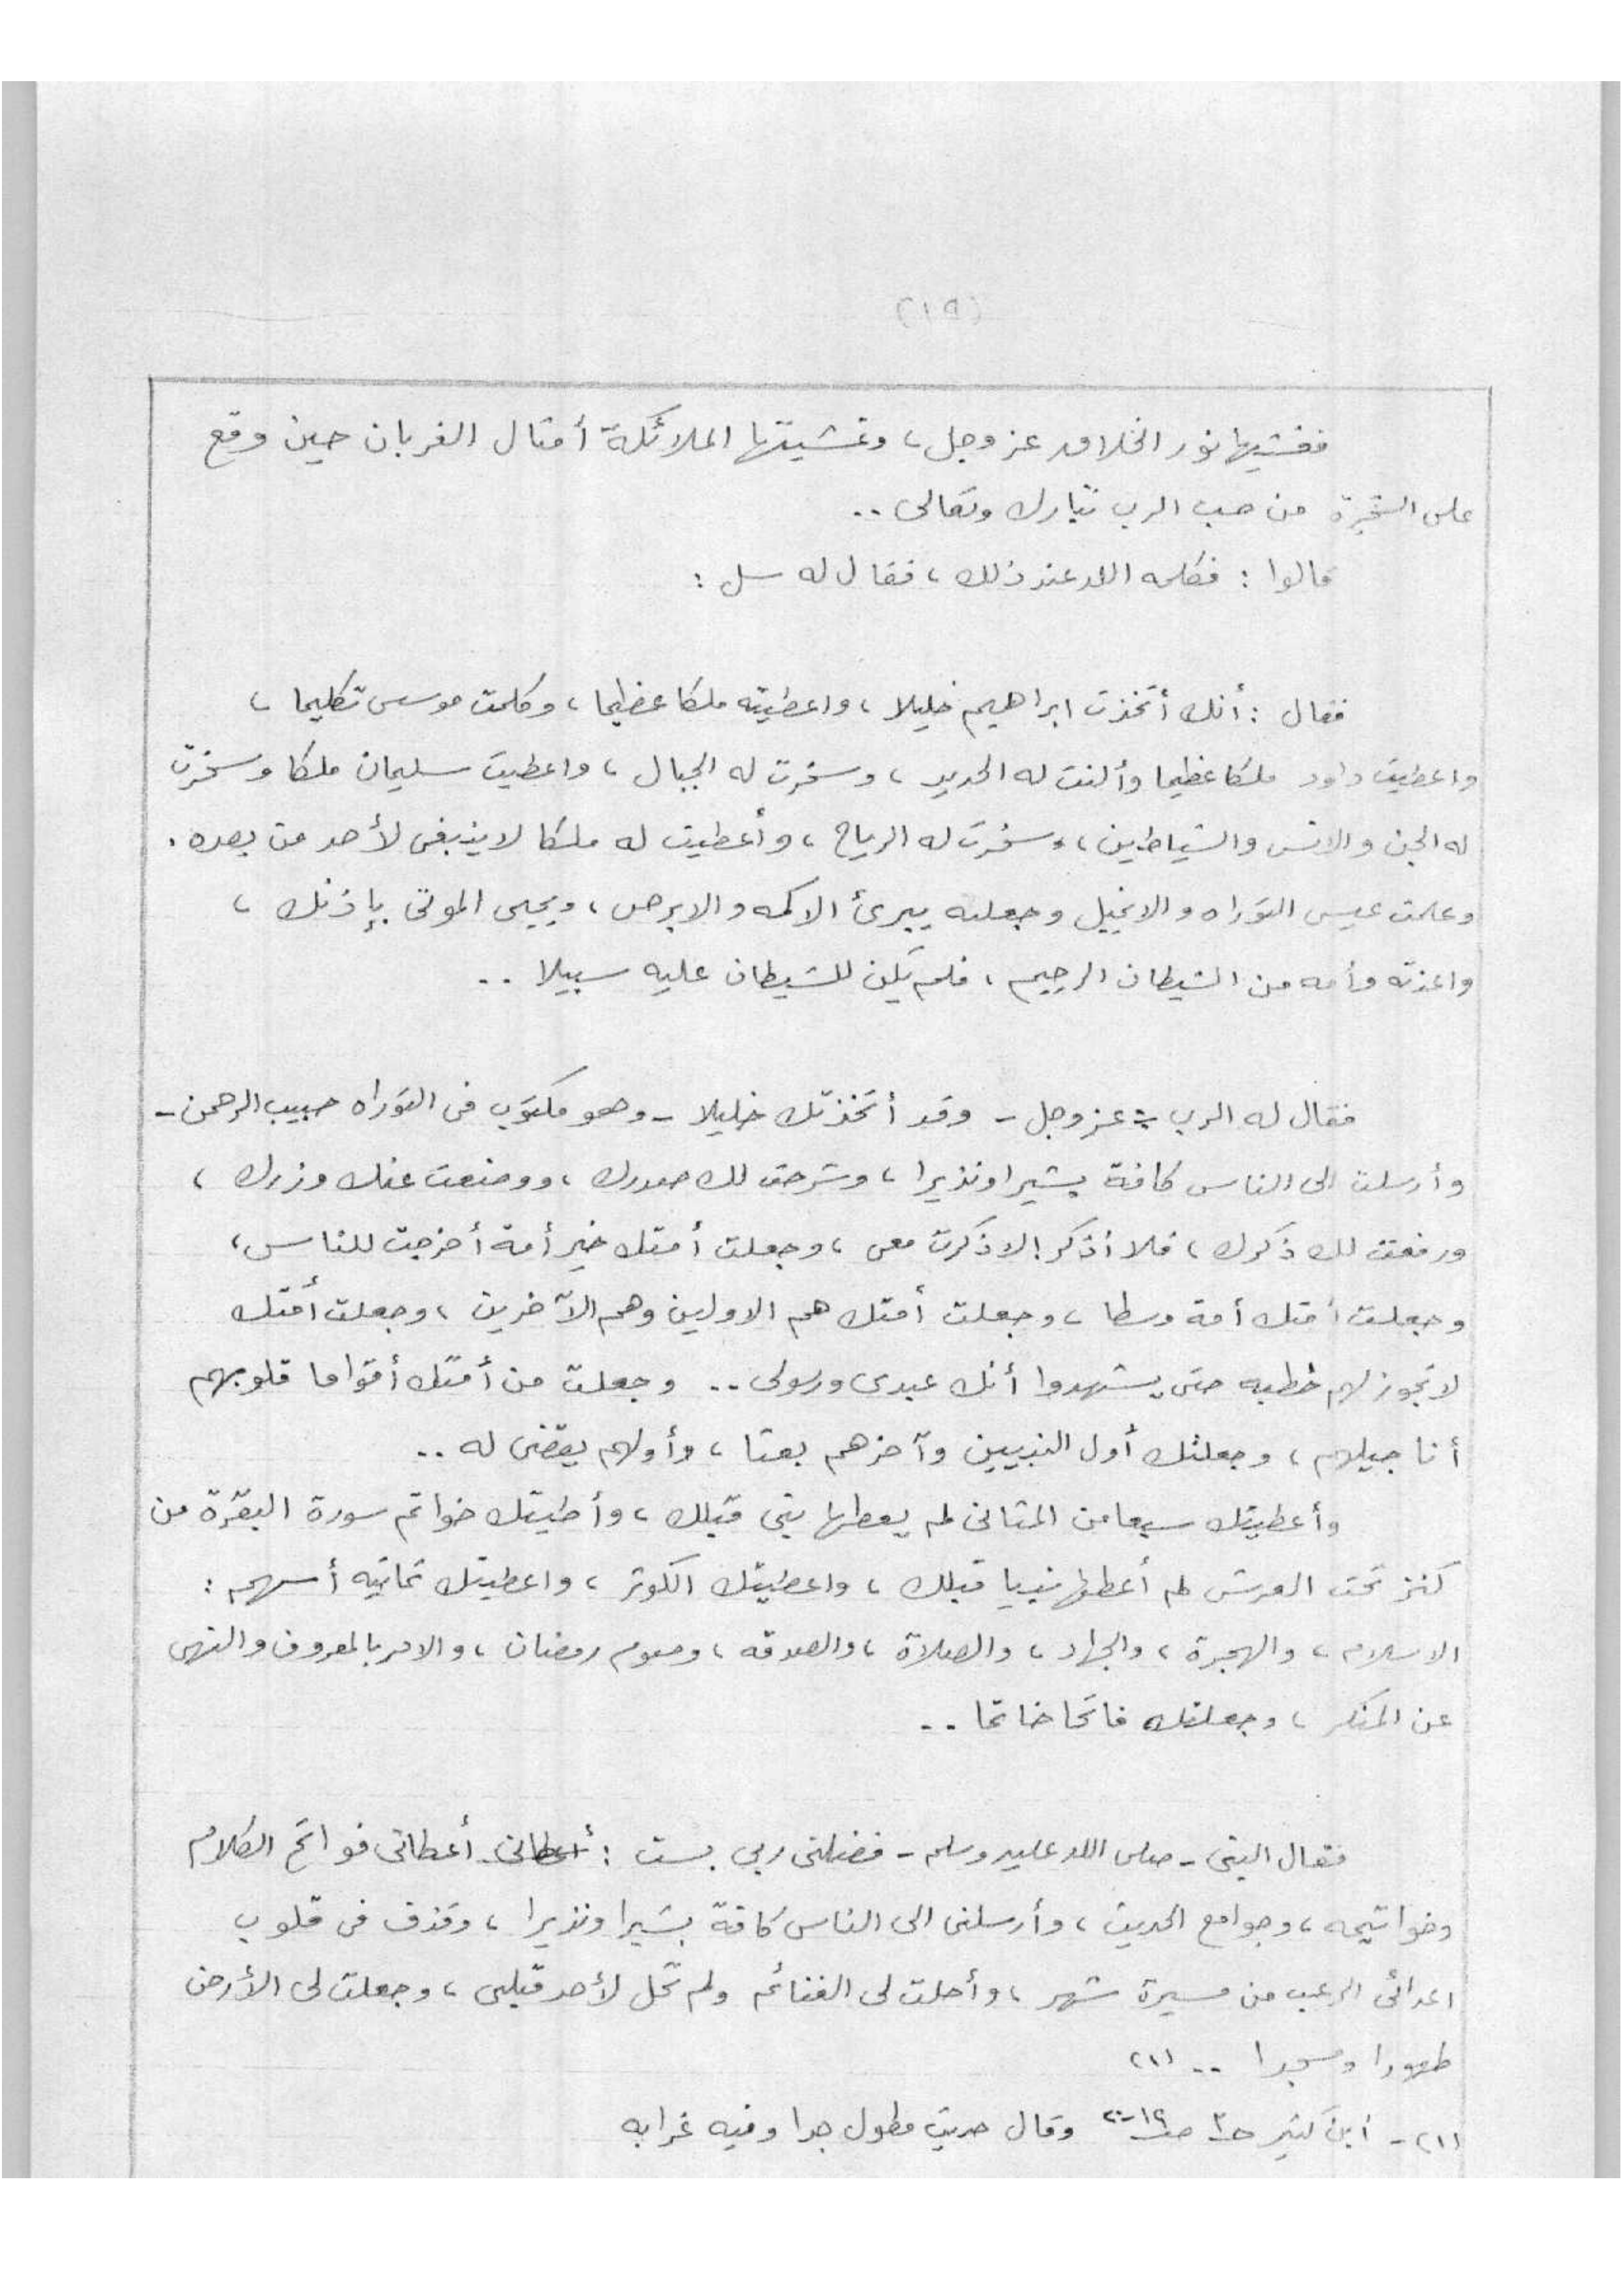 (١٩)
فغشيها نور الخلاق عز وجل، وغشيتها الملائكة أمثال الغربان حين وقع
على الشجرة من حب الرب تبارك وتعالى ..
قالوا : فكلمه الله عند ذلك، فقال له سل :
فقال : أنك أتخذت ابراهيم خليلا، واعطيته ملكا عظيما، وكلمت موسى تكليما،
واعطيت داود ملكا عظيما وألنت له الحديد، وسخرت له الجبال، واعطيت سليمان ملكا وسخرت
له الجن والانس والشياطين، وسخرت له الرياح، وأعطيت له ملكا لا ينبغى لأحد من بعده .
وعلمت عيسى التوراه والانجيل وجعلته يبرئ الاكمه والابرص، ويحيى الموتى بإذنك،
واعذته وأمه من الشيطان الرجيم، فلم يكن للشيطان عليه سبيلا ..
فقال له الرب - عز وجل - وقد أتخذتك خليلا - وهو مكتوب فى التوراه حبيب الرحمن -
وأرسلت الى الناس كافة بشيرا ونذيرا، وشرحت لك صدرك، ووضعت عنك وزرك،
ورفعت لك ذكرك، فلا أذكر إلا ذكرت معى، وجعلت أمتك خير أمة أخرجت للناس،
وجعلت أمتك أمة وسطا، وجعلت أمتك هم الاولين وهم الآخرين، وجعلت أمتك
لا تجوز لهم خطبه حتى يشهدوا أنك عبدى ورسولى .. وجعلت من أمتك أقواما قلوبهم
أناجيلهم، وجعلتك أول النبيين وآخرهم بعثا، وأولهم يقضى له ..
وأعطيتك سبعا من المثانى لم يعطها نبى قبلك، وأعطيتك خواتم سورة البقرة من
كنز تحت العرش لم أعطها نبيا قبلك، واعطيتك الكوثر، واعطيتك ثمانيه أسهم :
الاسلام، والهجرة، والجهاد، والصلاة، والصدقه، وصوم رمضان، والامر بالمعروف والنهى
عن المنكر، وجعلتك فاتحا خاتما ..
فقال النبى - صلى الله عليه وسلم - فضلنى ربى بست : أعطانى أعطانى فواتح الكلام
وخواتيمه، وجوامع الحديث، وأرسلنى الى الناس كافة بشيرا ونذيرا، وقذف فى قلوب
اعدائى الرعب من مسيرة شهر، وأحلت لى الغنائم ولم تحل لأحد قبلى، وجعلت لى الأرض
طهورا ومسجدا .. (٢١)
(٢١) - أبن كثير ح٣ ص١٩-٢٠ وقال حديث مطول جدا وفيه غرابه